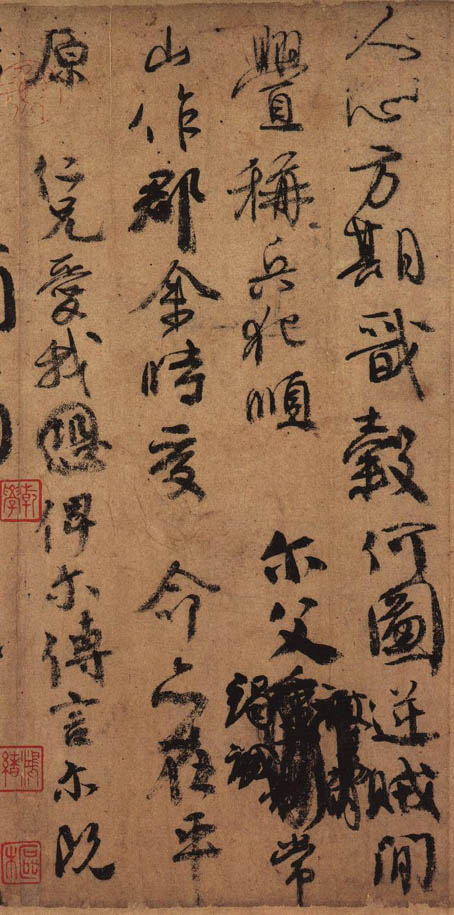 人心方期戩穀何圖逆賊閒
舋稱兵犯順 尔父竭誠常
山作郡余時受 命亦在平
原 仁兄愛我恐俾尔傳言尔既